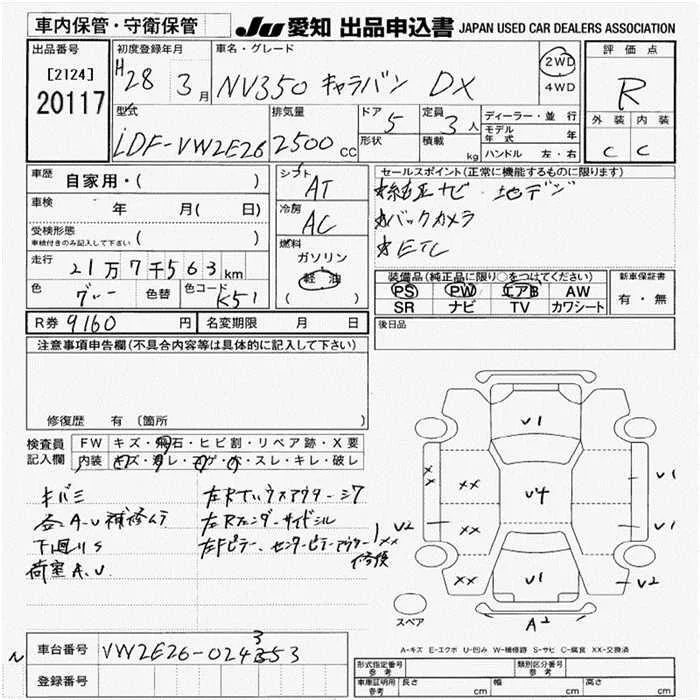 車内保管・守衛保管 JU 愛知 出品申込書 JAPAN USED CAR DEALERS ASSOCIATION
出品番号 初度登録年月 車名・グレード 評価点
[2124] H28 3月 NV350 キャラバン DX 2WD 4WD R
20117
型式 排気量 ドア 定員 ディーラー・並行 外装 内装
LDF-VW2E26 2500cc 5 3人 モデル年式 年 C C
形状 積載 kg ハンドル 左・右
車歴 自家用・( ) シフト AT セールスポイント(正常に機能するものに限ります)
車検 年 月( 日) 冷房 AC ☆純正ナビ・地デジ
☆バックカメラ
受検形態 車検付きのみ記入して下さい ( ) 燃料 ガソリン 軽油 ☆ETC
走行 21万7千563km 装備品(純正品に限り○をつけてください) 新車保証書
色 グレー 色替 色コード K51 ( ) PS PW エアB AW 有・無
SR ナビ TV カワシート
R券 9160円 名変期限 月 日 後日品
注意事項申告欄(不具合内容等は具体的に記入して下さい)
修復歴 有 〔箇所 〕
検査員記入欄 FW キズ・飛石・ヒビ割・リペア跡・X要
内装 キズ・汚レ・コゲ・穴・スレ・キレ・破レ
キバミ
各A・U補修ムラ
下廻りS
荷室A・U
左Rインサイドシル
左Fピラー、センターピラーアウター XX
修復
V1
V4
V1
XX
XX
XX
XX
V2
V1
V1
V2
A2
スペア
A-キズ E-エクボ U-凹み W-補修跡 S-サビ C-腐食 XX-交換済
車台番号 VW2E26-024353
3
登録番号
形式指定番号 参考 類別区分番号 参考
車庫証明用 参考 長さ cm 幅 cm 高さ cm